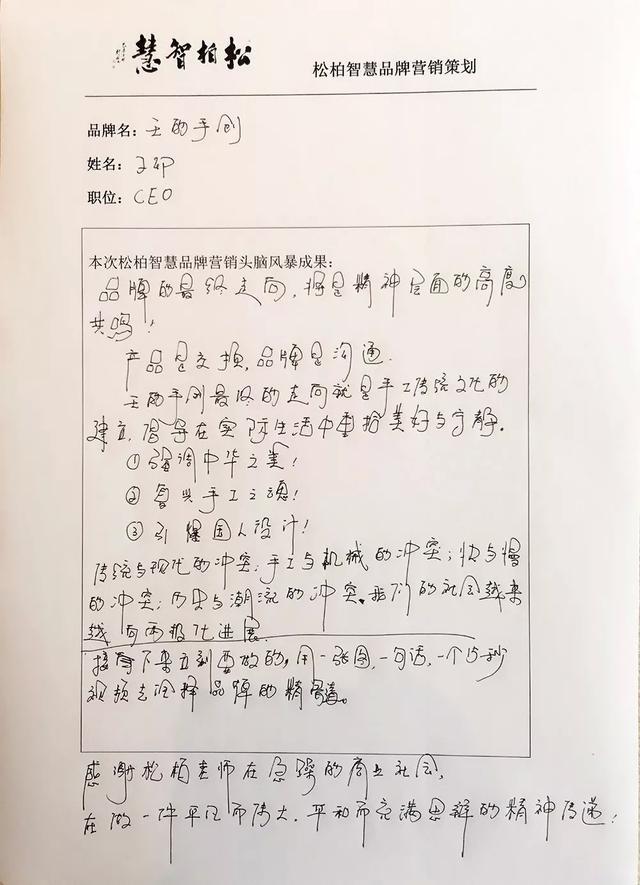 松柏智慧
松柏智慧品牌营销策划
品牌名: 王的手创
姓名: 王印
职位: CEO
本次松柏智慧品牌营销头脑风暴成果:
品牌的最终走向,将是精神层面的高度
共鸣!
产品是交换,品牌是沟通.
王的手创最终的走向就是手工传统文化的
建立,倡导在实际生活中重拾美好与宁静.
①强调中华之美!
②复兴手工之魂!
③引爆国人设计!
传统与现代的冲突;手工与机械的冲突;快与慢
的冲突;历史与潮流的冲突.我们的社会越来
越向两极化进展.
接下来立刻要做的,用一张图,一句话,一个15秒
视频去诠释品牌的精髓。
感谢松柏老师在急躁的商业社会,
在做一件平凡而伟大.平和而充满思辨的精神传递!